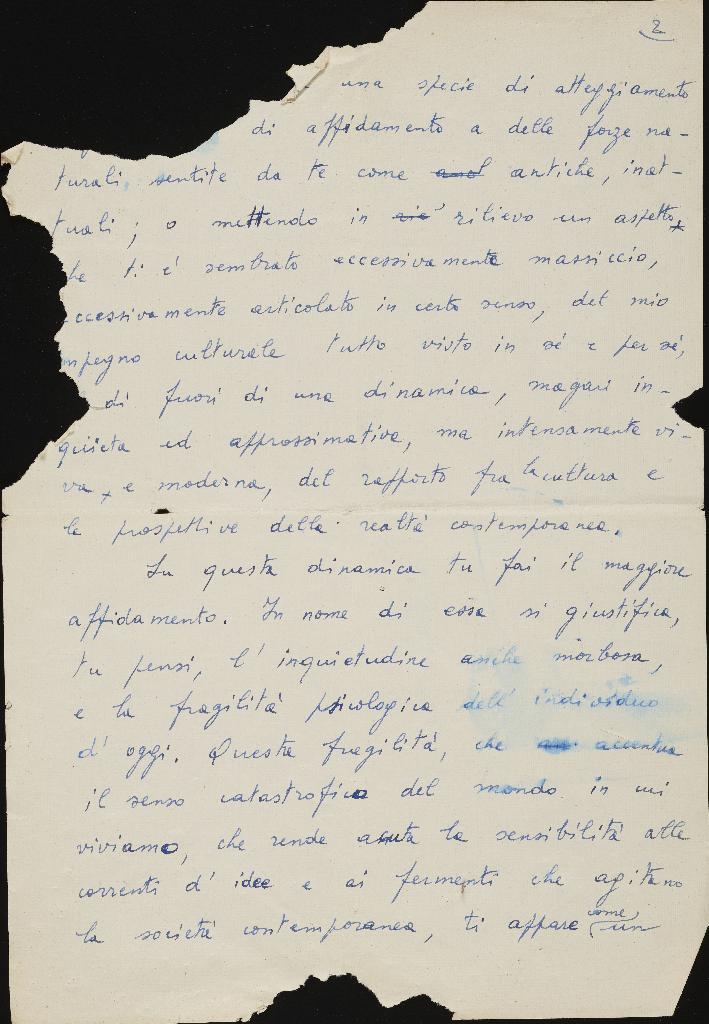 2
una specie di atteggiamento
di affidamento a delle forze na-
turali, sentite da te come antiche, inat-
tuali; o mettendo in rilievo un aspetto,
he ti è sembrato eccessivamente massiccio,
ccessivamente articolato in certo senso, del mio
mpegno culturale tutto visto in sé e per sé,
di fuori di una dinamica, magari in-
quieta ed approssimativa, ma intensamente vi-
va, e moderna, del rapporto fra la cultura e
le prospettive della realtà contemporanea.
In questa dinamica tu fai il maggiore
affidamento. In nome di essa si giustifica,
tu pensi, l'inquietudine anche morbosa,
e la fragilità psicologica dell'individuo
d'oggi. Questa fragilità, che accentua
il senso catastrofico del mondo in cui
viviamo, che rende acuta la sensibilità alle
correnti d'idee e ai fermenti che agitano
la società contemporanea, ti appare come un